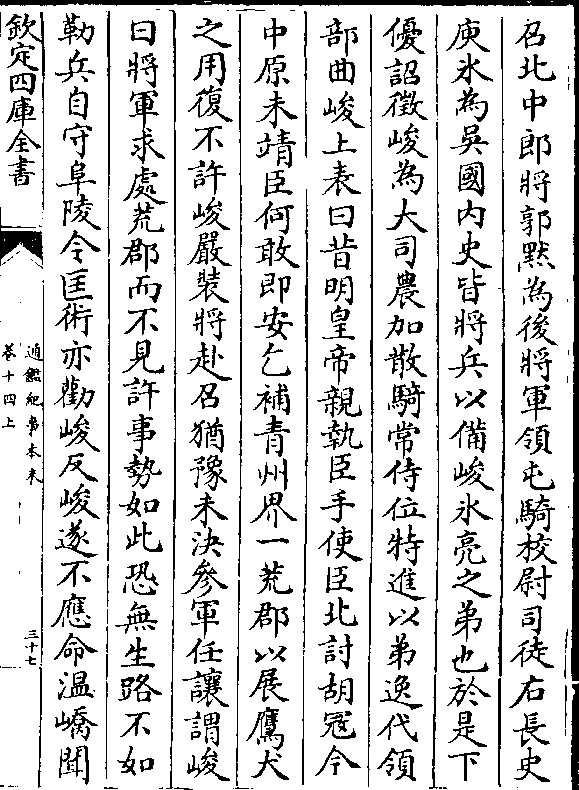 召北中郎將郭黙為後將軍領屯騎校尉司徒右長史
庾氷為吳國内史皆將兵以備峻氷亮之弟也於是下
優詔徵峻為大司農加散騎常侍位特進以弟逸代領
部曲峻上表曰昔明皇帝親執臣手使臣北討胡冦今
中原未靖臣何敢即安乞補青州界一荒郡以展鷹犬
之用復不許峻嚴裝將赴召猶豫未決參軍任讓謂峻
曰將軍求處荒郡而不見許事勢如此恐無生路不如
勒兵自守阜陵令匡術亦勸峻反峻遂不應命温嶠聞
欽定四庫全書
通鑑紀事本末
卷十四上
三十七